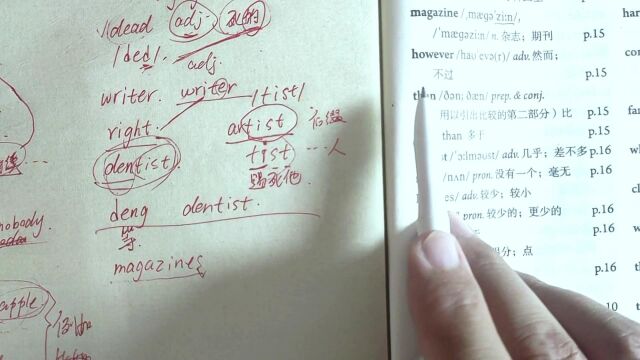 dead adj 死的
/ded/ adj.
writer. writer /tist/
right. artist 后缀
dentist tist ···人
踢死他
deng dentist.
等
magazines
nobody.
apple
magazine /ˌmægəˈziːn/,
/ˈmægəziːn/ n. 杂志；期刊 p.15
however /haʊˈevə(r)/ adv. 然而；
不过 p.15
than /ðən; ðæn/ prep. & conj.
用以引出比较的第二部分）比 p.15
than 多于 p.15
/ˈɔːlməʊst/ adv. 几乎；差不多 p.16
/nʌn/ pron. 没有一个；毫无 p.16
/les/ adv. 较少；较小
pron. 较少的；更少的 p.16
p.16
得分；点 p.16